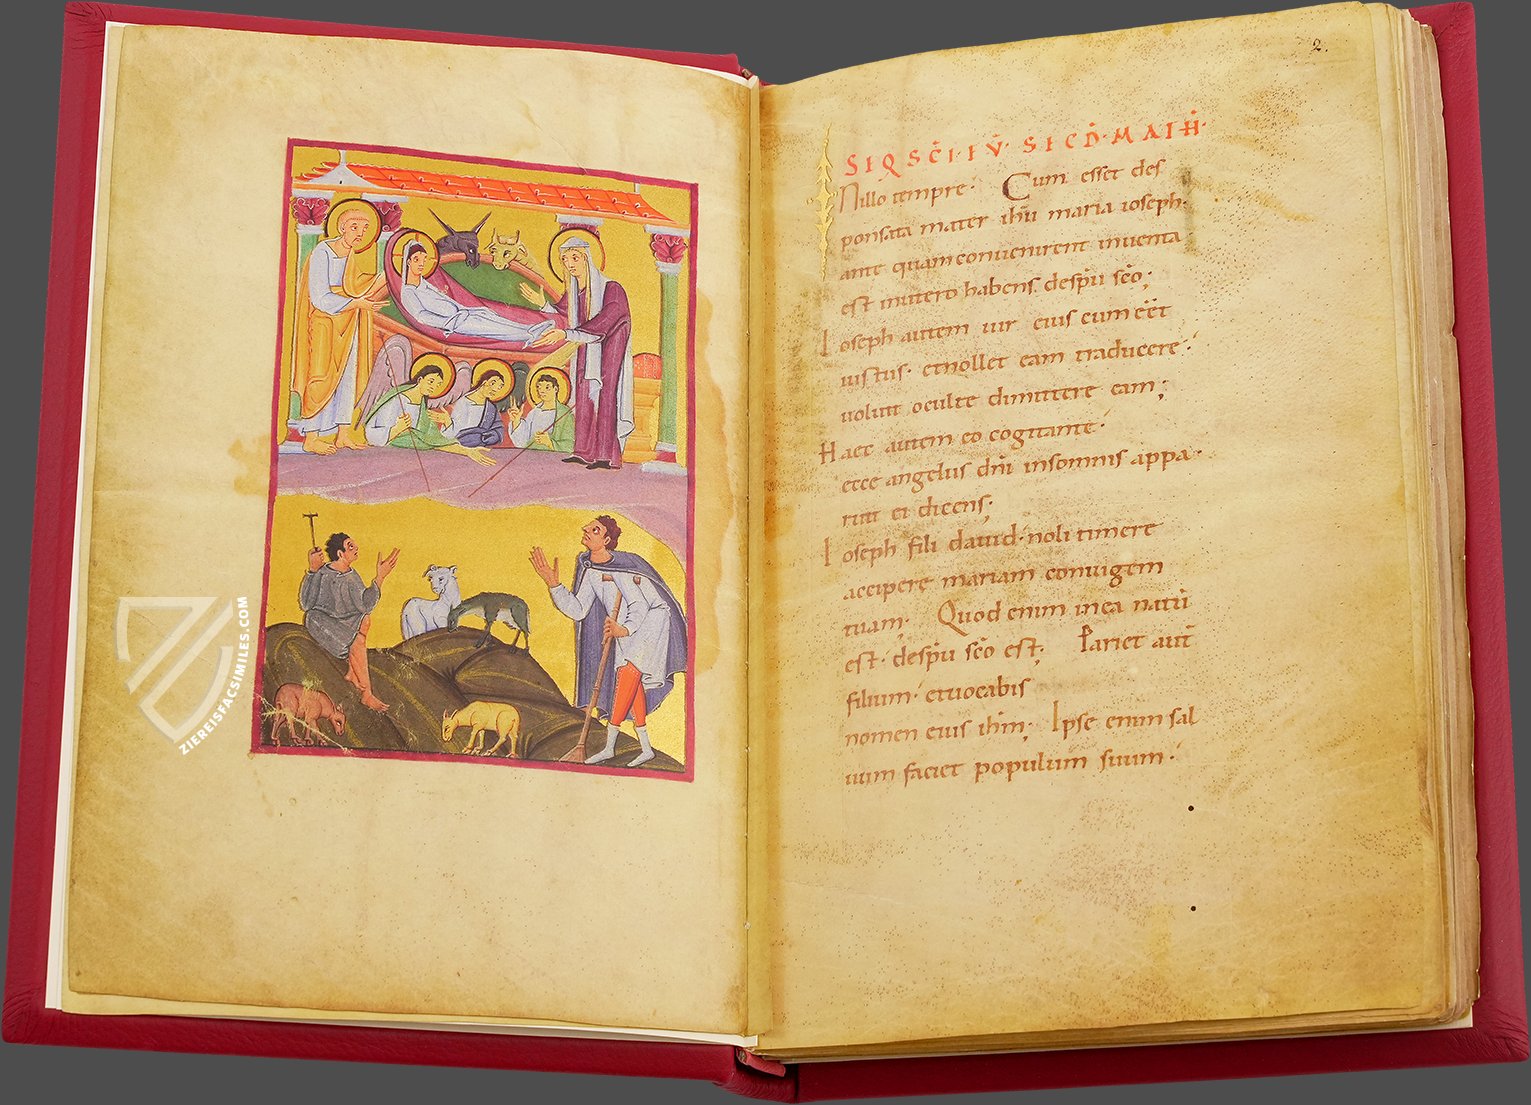 ZIEREISFACSIMILES.COM
2.
SIQ SC̄I·IV̄·SI CD̄·MATH̄·
Nillo tempre· Cum esset des
ponsata mater ihū maria ioseph·
ante quam convenirent inventa
est inutero habens despū sc̄o;
Ioseph autem uir eius cum eēt
iustus· etnollet eam traducere·
uoluit oculte dimittere eam;
Haec autem eo cogitante·
ecce angelus dn̄i insomnis appa·
ruit ei dicens;
Ioseph fili dauid· noli timere
accipere mariam coniugem
tuam; Quod enim inea natū
est· despū sc̄o est; Pariet aut̄
filium· etuocabis
nomen eius ihm̄; Ipse enim sal
uum faciet populum suum·